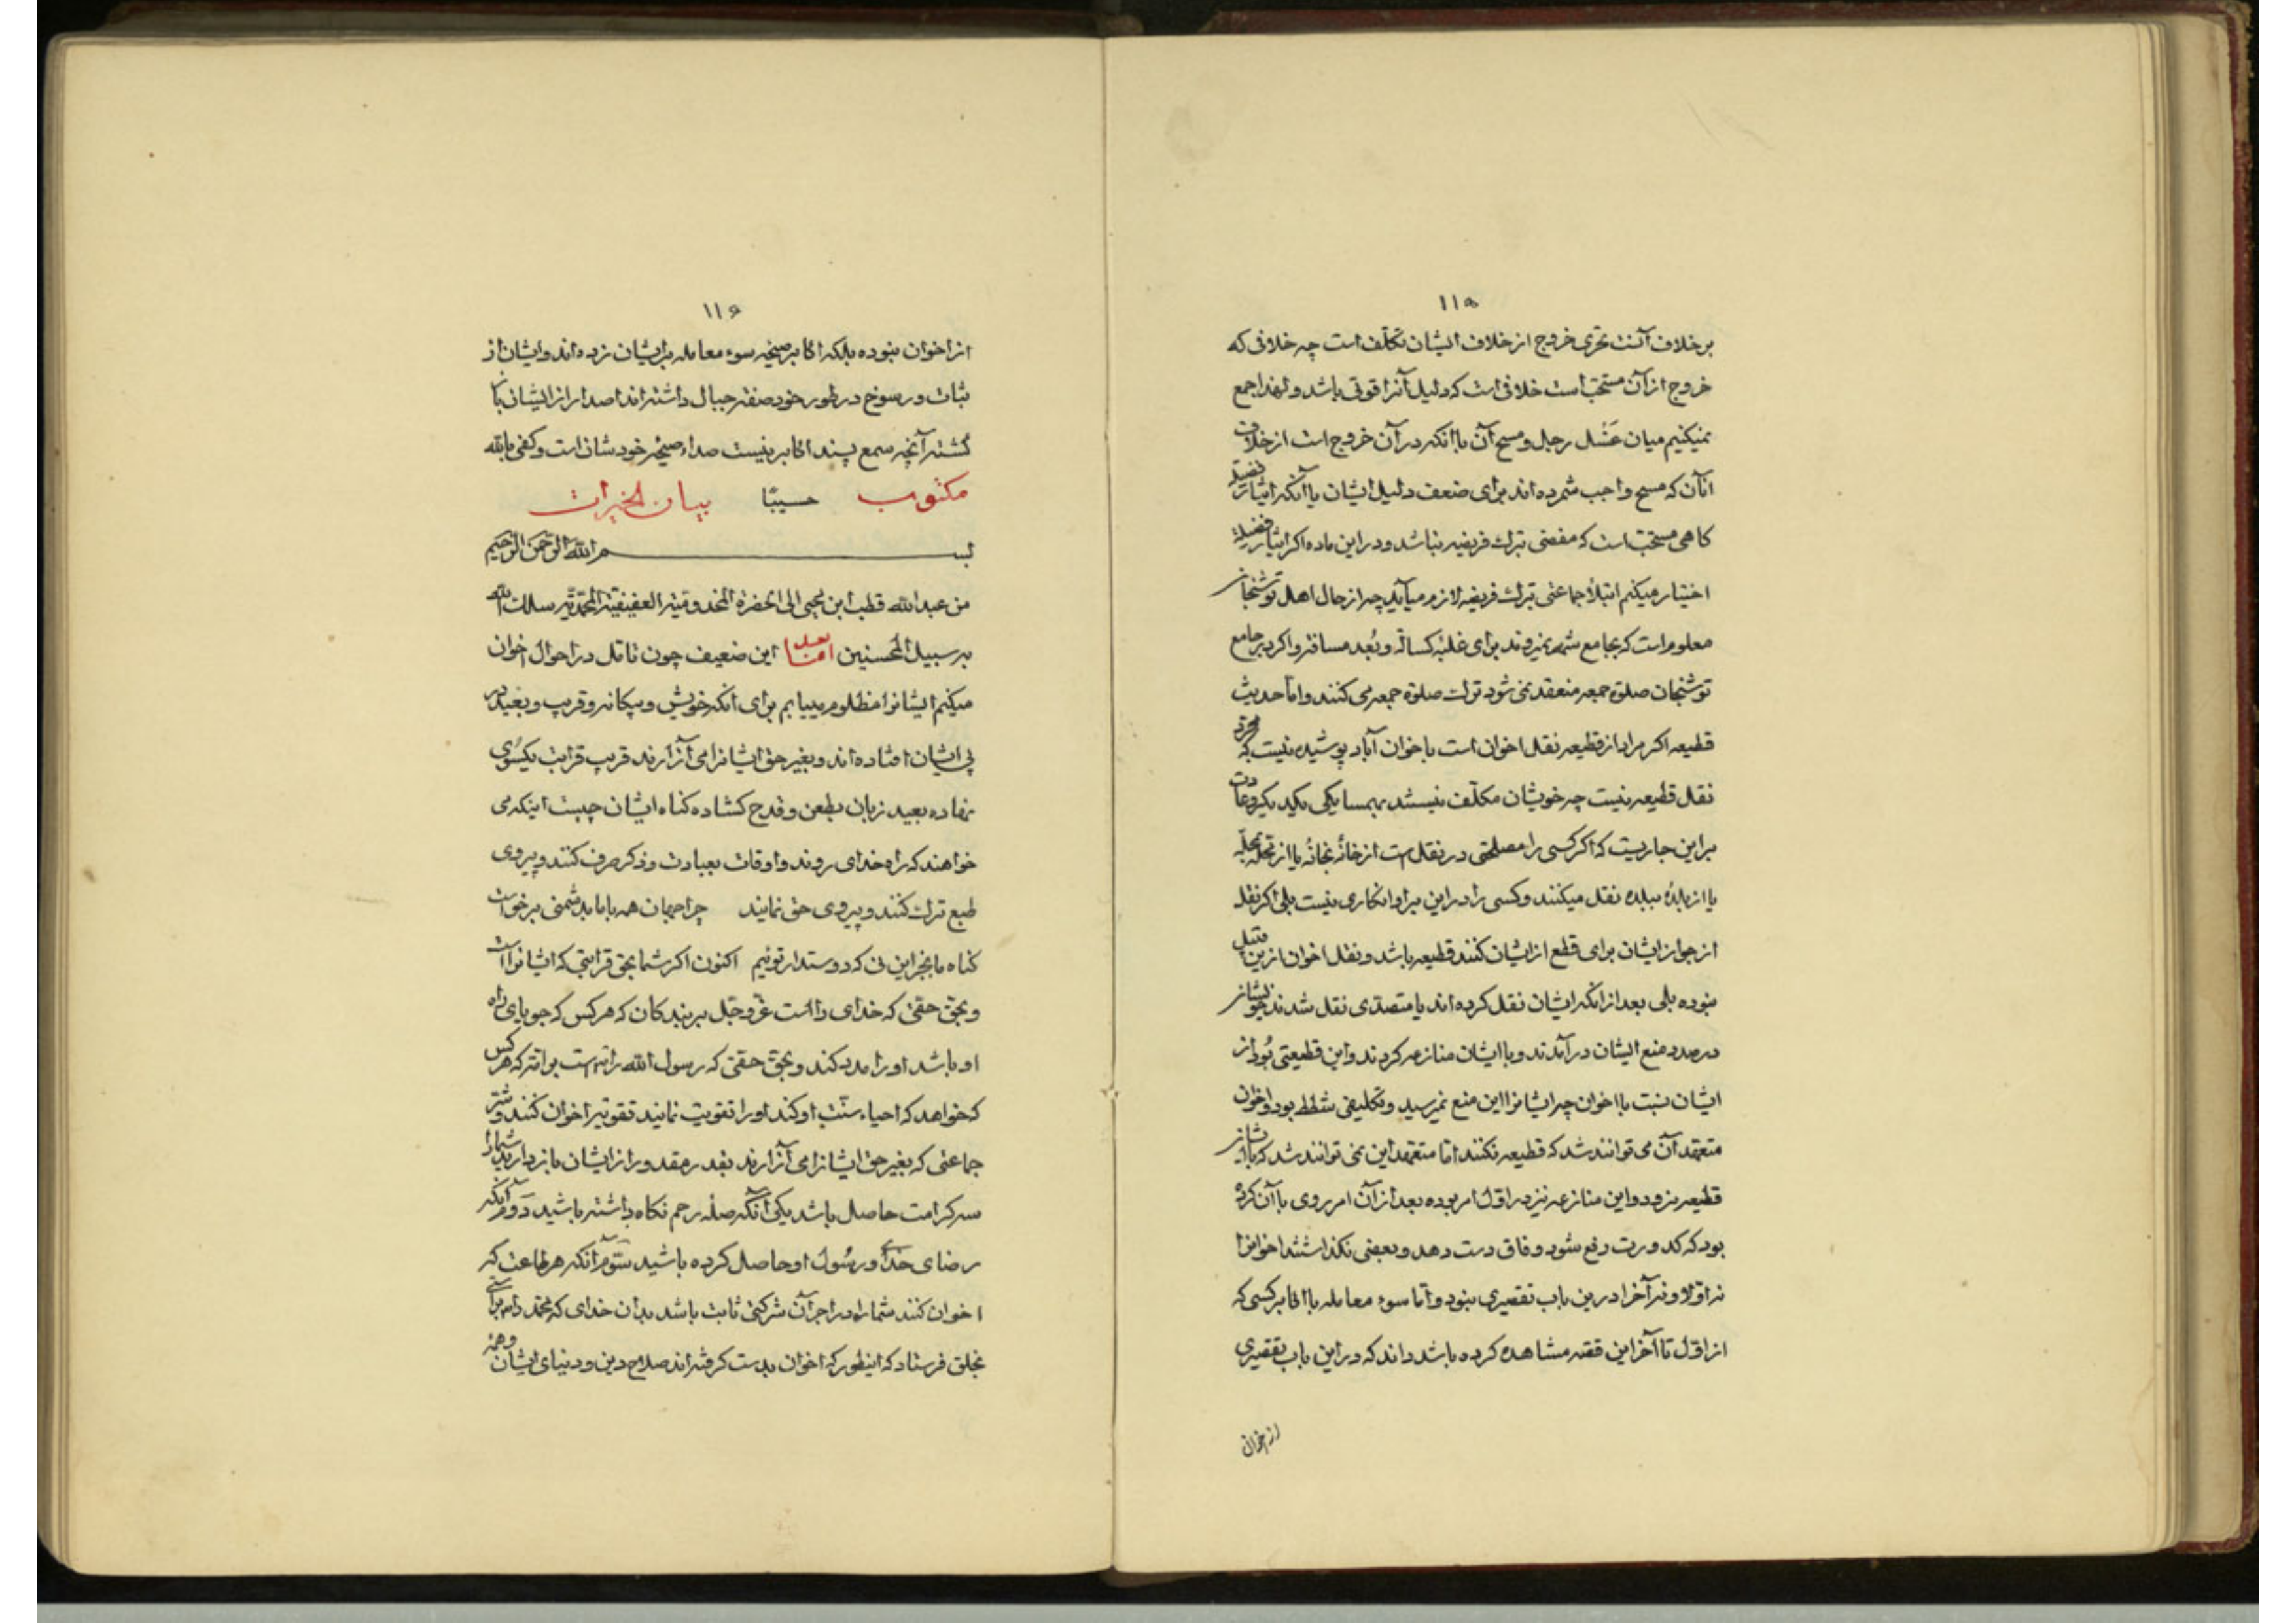 ١١٥
بر خلاف آنست تحری خروج از خلاف ایشان تکلّف است چه خلافی که
خروج از آن مستحبّ است خلافی است که دلیل آنرا قوتی باشد و لهذا جمع
نمیکنیم میان غَسْل رجل و مسح آن با آنکه در آن خروج است از خلاف
آنان که مسح واجب شمرده اند برای ضعف دلیل ایشان یا آنکه ایثار فضیلة
کاهی مستحبّ است که مفضی بترک فریضه نباشد و در این ماده اکر ایثار فضیلة
اختیار میکنم ابتلاء جماعتی بترک فریضه لازم میآید چه از حال اهل توشنجان
معلوم است که بجامع شهر نمیروند برای غلبهٔ کسالة و بُعد مسافة و اکر در جامع
توشنجان صلوة جمعه منعقد نمی شود ترک صلوة جمعه می کنند و امّا حدیث
قطیعه اکر مراد از قطیعه نقل اخوان است باخوان آباد پوشیده نیست که مجرّد
نقل قطیعه نیست چه خویشان مکلّف نیستند بهمسایکی یکدیکر و عادت
بر این جاریست که اکر کسی را مصلحتی در نقل است از خانهٔ بخانهٔ یا از محلّهٔ بمحلّهٔ
یا از بلدهٔ ببلدهٔ نقل میکنند و کسی را در این بر او انکاری نیست بلی اکر نقل
از جوار ایشان برای قطع از ایشان کنند قطیعه باشد و نقل اخوان ازین قبیل
نبوده بلی بعد از آنکه ایشان نقل کرده اند یا متصدّی نقل شدند خویشان
در صدد منع ایشان در آمدند و با ایشان منازعه کردند و این قطیعتی بُود از
ایشان نسبت با اخوان چه ایشانرا این منع نمیرسید و تکلیفی شطط بود و اخوان
متعهّد آن می توانند شد که قطیعه نکنند امّا متعهّد این نمی توانند شد که با ایشان
قطیعه نرود و این منازعه نیز در اوّل امر بوده بعد از آن امر روی با آن کرده
بود که کدورت رفع شود وفاق دست دهد و بعضی نکذاشتند اخوانرا
نه اوّلا و نه آخرا درین باب تقصیری نبود و امّا سوء معامله با اکابر کسی که
از اوّل تا آخر این قصّه مشاهده کرده باشد داند که در این باب تقصیری
از اخوان
١١٦
از اخوان نبوده بلکه اکابر صیحهٔ سوء معامله بر ایشان زده اند و ایشان از
ثبات و رسوخ در طور خود صفت جبال داشته اند صدا از ایشان باز
کشته آنچه سمع پسند اکابر نیست صداء صیحهٔ خودشان است و کفی بالله
مکتوب حسیبًا بیان الخیرات
بسم الله الرّحمن الرّحیم
من عبد الله قطب ابن یحیی الی الحضرة المخدومیّة العفیفیّة المحمّدیّة سلک الله
به سبیل المحسنین امّا بعد این ضعیف چون تامّل در احوال اخوان
میکنم ایشانرا مظلوم مییابم برای آنکه خویش و بیکانه و قریب و بعید در
پی ایشان افتاده اند و بغیر حق ایشانرا می آزارند قریب قرابت یکسوی
نهاده بعید زبان بطعن و قدح کشاده کناه ایشان چیست اینکه می
خواهند که راه خدای روند و اوقات بعبادت و ذکر صرف کنند و پیروی
طبع ترک کنند و پیروی حق نمایند چرا جهان همه با ما بدشمنی برخواست
کناه ما بجز این نی که دوستدار توئیم اکنون اکر شما بحق قرابتی که ایشانراست
و بحق حقّی که خدای راست عزّ و جلّ بر بندکان که هر کس که جویای راه
او باشد او را مدد کند و بحق حقّی که رسول الله راست بر امّتر که هر کس
که خواهد که احیاء سنّت او کند او را تقویت نمایند تقویة اخوان کنند و شرّ
جماعتی که بغیر حق ایشانرا می آزارند بقدر مقدور از ایشان باز دارید شما را
سه کرامت حاصل باشد یکی آنکه صلهٔ رحم نکاه داشته باشید دوّم آنکه
رضای خدای و رسول او حاصل کرده باشید سوّم آنکه هر طاعت که
اخوان کنند شما را در اجر آن شرکتی ثابت باشد بدان خدای که محمّد را براستی
بخلق فرستاد که اینطور که اخوان بدست کرفته اند صلاح دین و دنیای ایشان و همهٔ